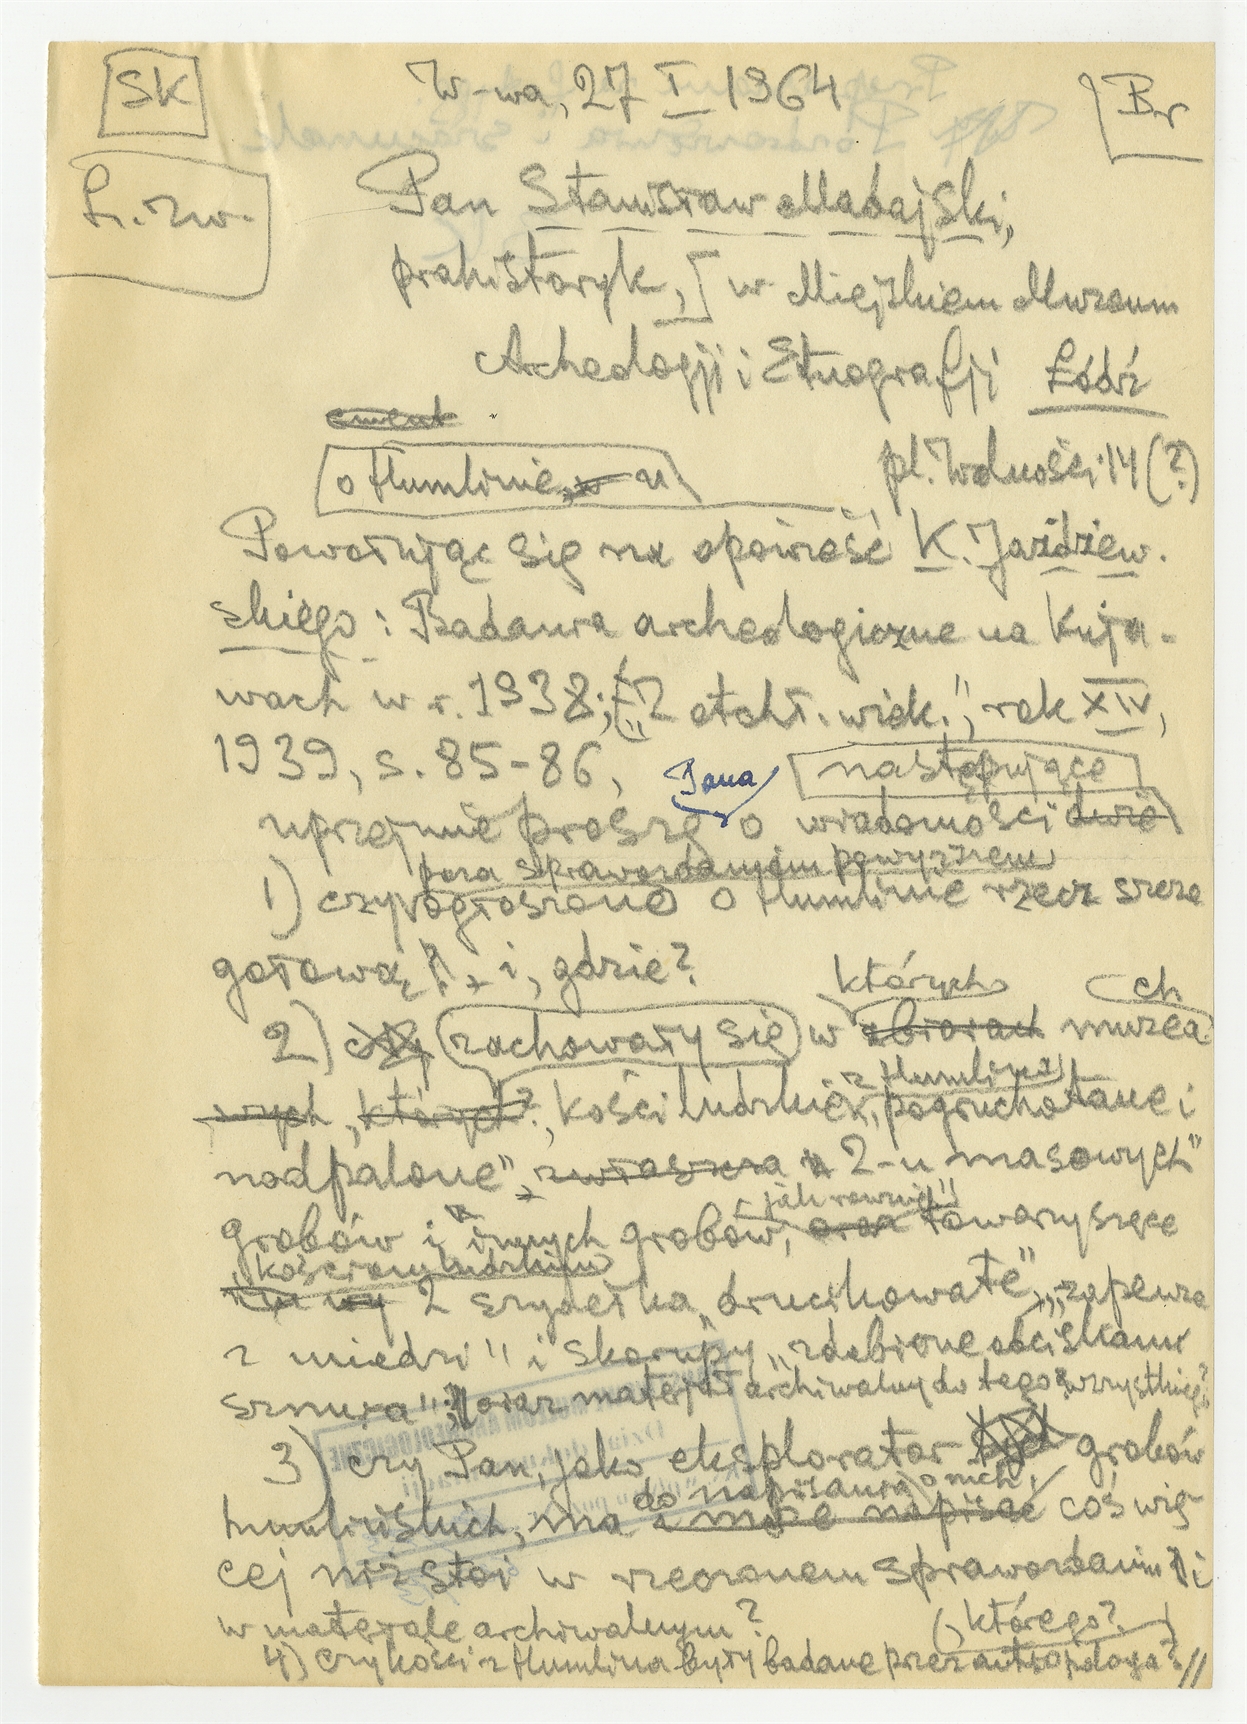 SK
W-wa, 27 I 1964
Br
L. zw.
Pan Stanisław Madajski,
prahistoryk, w Miejskiem Muzeum
Archeologji i Etnografji Łódź
pl. Wolności 14 (?)
o Humlinie, w u
Powołując się na opowieść K. Jażdżew-
skiego: Badania archeologiczne na Kuja-
wach w r. 1938; „Z otchł. wiek.", rok XIV,
1939, s. 85-86,
Pana następujące
uprzejmie proszę o wiadomości dwie
poza sprawozdaniem powyższem
1) czy ogłoszono o Humlinie rzecz szcze
gółową, i, gdzie?
których ch
2) czy zachowały się w zbiorach muzea
z Humlina
wych, których?, kości ludzkie, „pogruchotane i
nadpalone", zwłaszcza z 2-u masowych"
jak również
grobów i z innych grobów, oraz towarzyszące
kościom ludzkim
2 szydełka „drucikowate", „zapewne
z miedzi" i skorupy „zdobione odciskami
sznura", oraz materjał archiwalny do tego wszystkiego?
3) czy Pan, jako eksplorator grobów
do napisania o nich
humlińskich, ma i może napisać coś wię-
cej niż stoi w rzeczonem sprawozdaniu i
w materjale archiwalnym?
(którego?)
4) Czy kości z Humlina były badane przez antropologa?